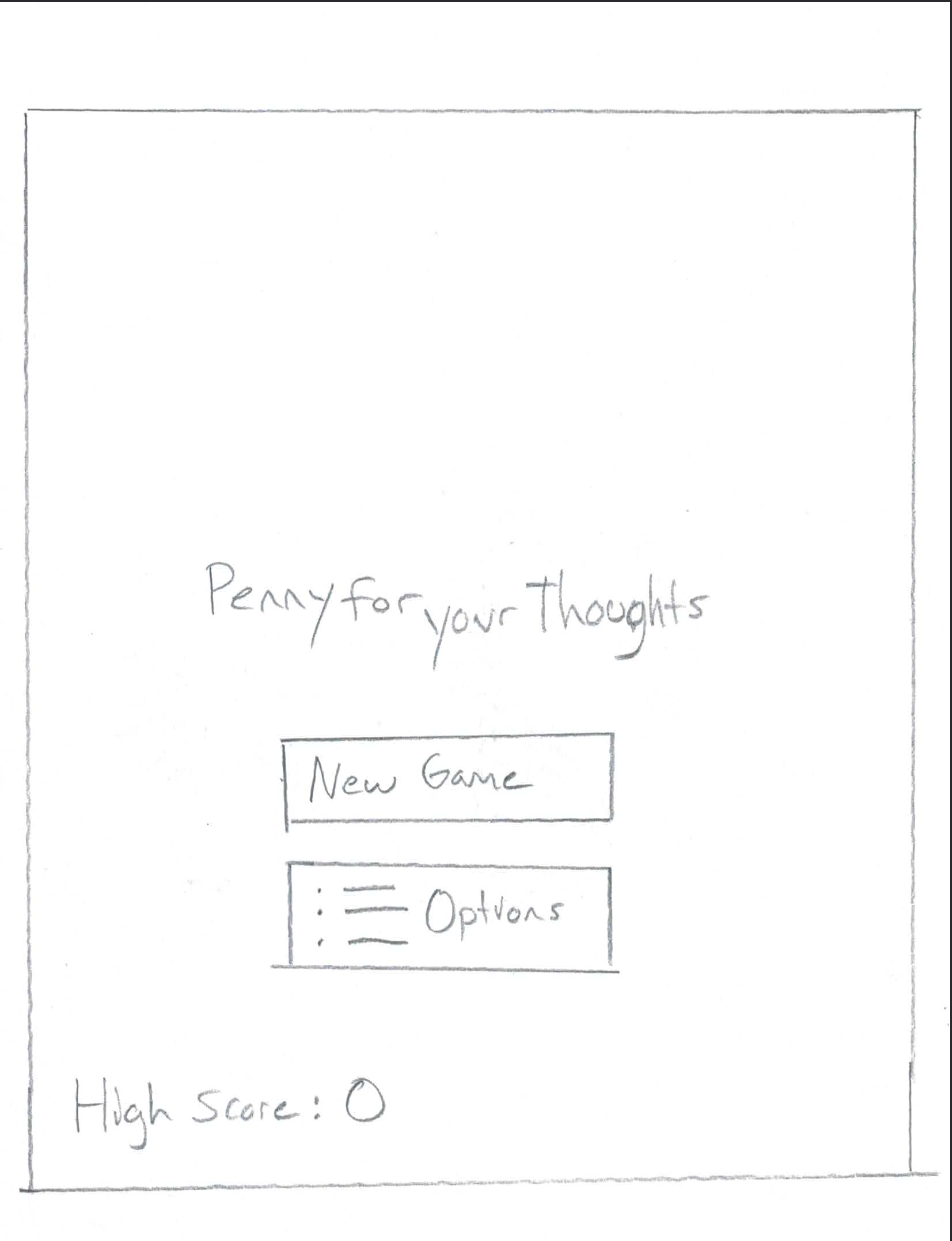 Penny for your Thoughts
New Game
Options
High Score: 0